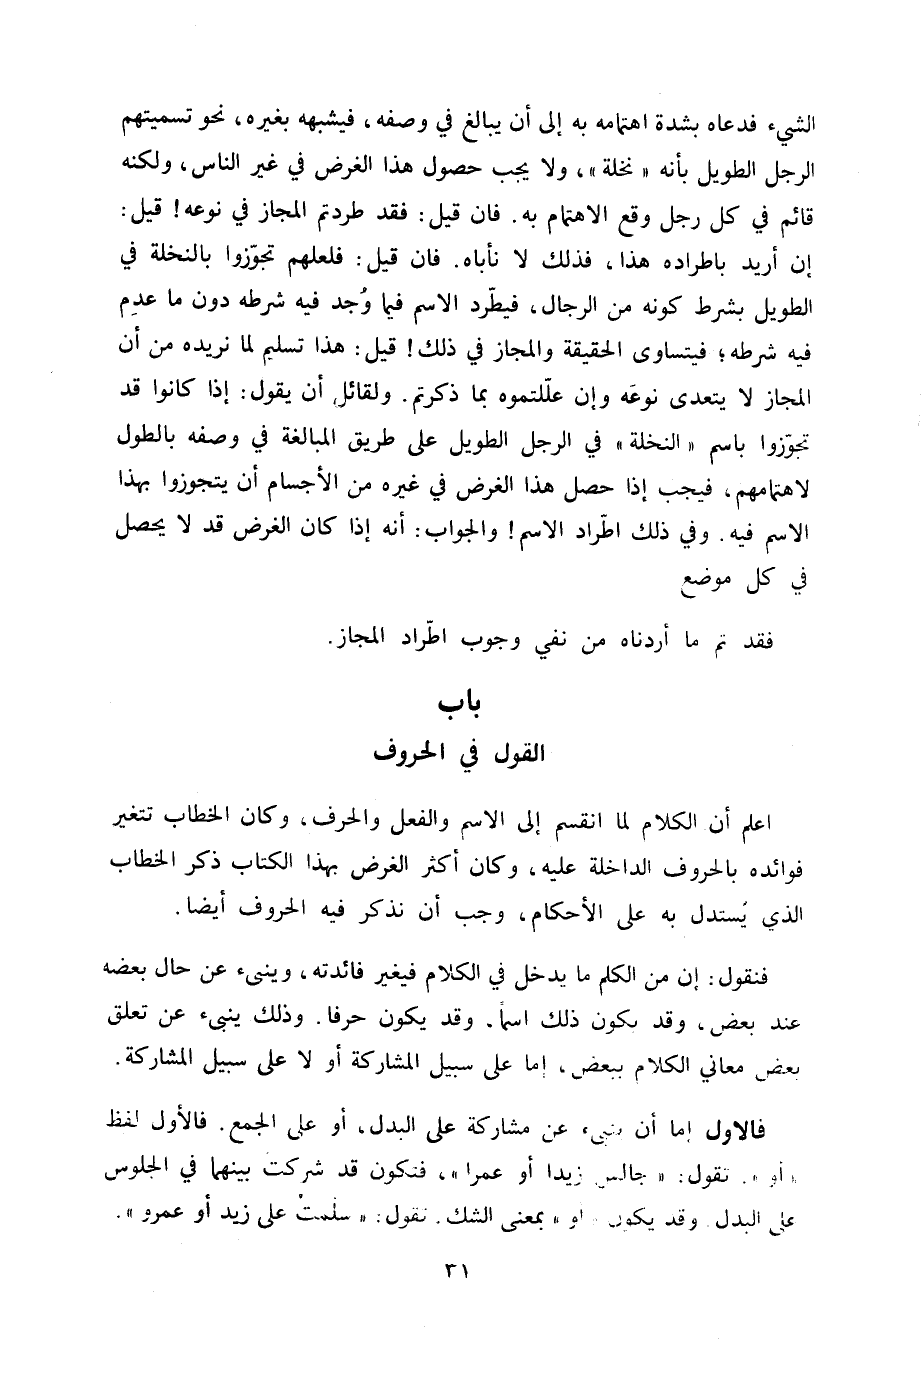 الشيء فدعاه بشدة اهتمامه به إلى أن يبالغ في وصفه، فيشبهه بغيره، نحو تسميتهم
الرجل الطويل بأنه « نخلة »، ولا يجب حصول هذا الغرض في غير الناس، ولكنه
قائم في كل رجل وقع الاهتمام به. فان قيل: فقد طردتم المجاز في نوعه! قيل:
إن أريد باطراده هذا، فذلك لا نأباه. فان قيل: فلعلهم تجوّزوا بالنخلة في
الطويل بشرط كونه من الرجال، فيطّرد الاسم فيما وُجد فيه شرطه دون ما عدم
فيه شرطه؛ فيتساوى الحقيقة والمجاز في ذلك! قيل: هذا تسليم لما نريده من أن
المجاز لا يتعدى نوعَه وإن علّلتموه بما ذكرتم. ولقائل أن يقول: إذا كانوا قد
تجوّزوا باسم « النخلة » في الرجل الطويل على طريق المبالغة في وصفه بالطول
لاهتمامهم، فيجب إذا حصل هذا الغرض في غيره من الأجسام أن يتجوزوا بهذا
الاسم فيه. وفي ذلك اطّراد الاسم! والجواب: أنه إذا كان الغرض قد لا يحصل
في كل موضع
فقد تم ما أردناه من نفي وجوب اطّراد المجاز.
باب
القول في الحروف
اعلم أن الكلام لما انقسم إلى الاسم والفعل والحرف، وكان الخطاب تتغير
فوائده بالحروف الداخلة عليه، وكان أكثر الغرض بهذا الكتاب ذكر الخطاب
الذي يُستدل به على الأحكام، وجب أن نذكر فيه الحروف أيضا.
فنقول: إن من الكلم ما يدخل في الكلام فيغير فائدته، وينبىء عن حال بعضه
عند بعض، وقد يكون ذلك اسماً. وقد يكون حرفا. وذلك ينبىء عن تعلق
بعض معاني الكلام ببعض، إما على سبيل المشاركة أو لا على سبيل المشاركة.
فالاول إما أن ينبىء عن مشاركة على البدل، أو على الجمع. فالأول لفظ
« أو ». تقول: « جالس زيدا أو عمرا »، فتكون قد شركت بينهما في الجلوس
على البدل. وقد يكون « أو » بمعنى الشك. تقول: « سلّمتُ على زيد أو عمرو ».
٣١